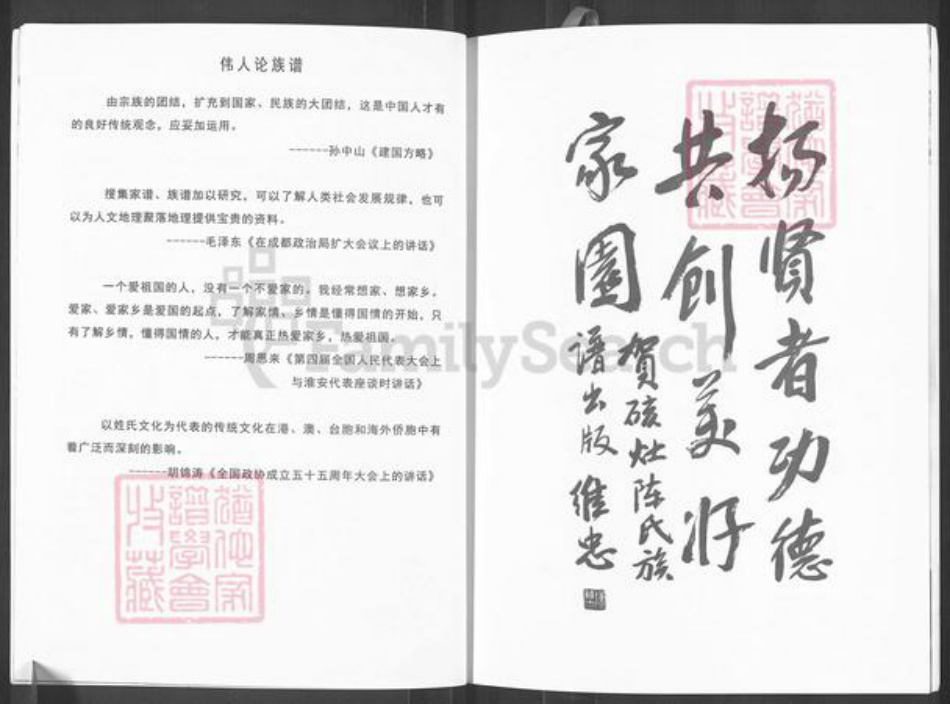 伟人论族谱
由宗族的团结，扩充到国家、民族的大团结，这是中国人才有
的良好传统观念，应妥加运用。
------孙中山《建国方略》
搜集家谱、族谱加以研究，可以了解人类社会发展规律，也可
以为人文地理聚落地理提供宝贵的资料。
------毛泽东《在成都政治局扩大会议上的讲话》
一个爱祖国的人，没有一个不爱家的。我经常想家、想家乡。
爱家、爱家乡是爱国的起点，了解家情、乡情是懂得国情的开始，只
有了解乡情，懂得国情的人，才能真正热爱家乡，热爱祖国。
------周恩来《第四届全国人民代表大会上
与淮安代表座谈时讲话》
以姓氏文化为代表的传统文化在港、澳、台胞和海外侨胞中有
着广泛而深刻的影响。
------胡锦涛《全国政协成立五十五周年大会上的讲话》
扬贤者功德
共创美好
家園
賀硋灶陈氏族
谱出版 维忠
FamilySearch
譜學會
收藏